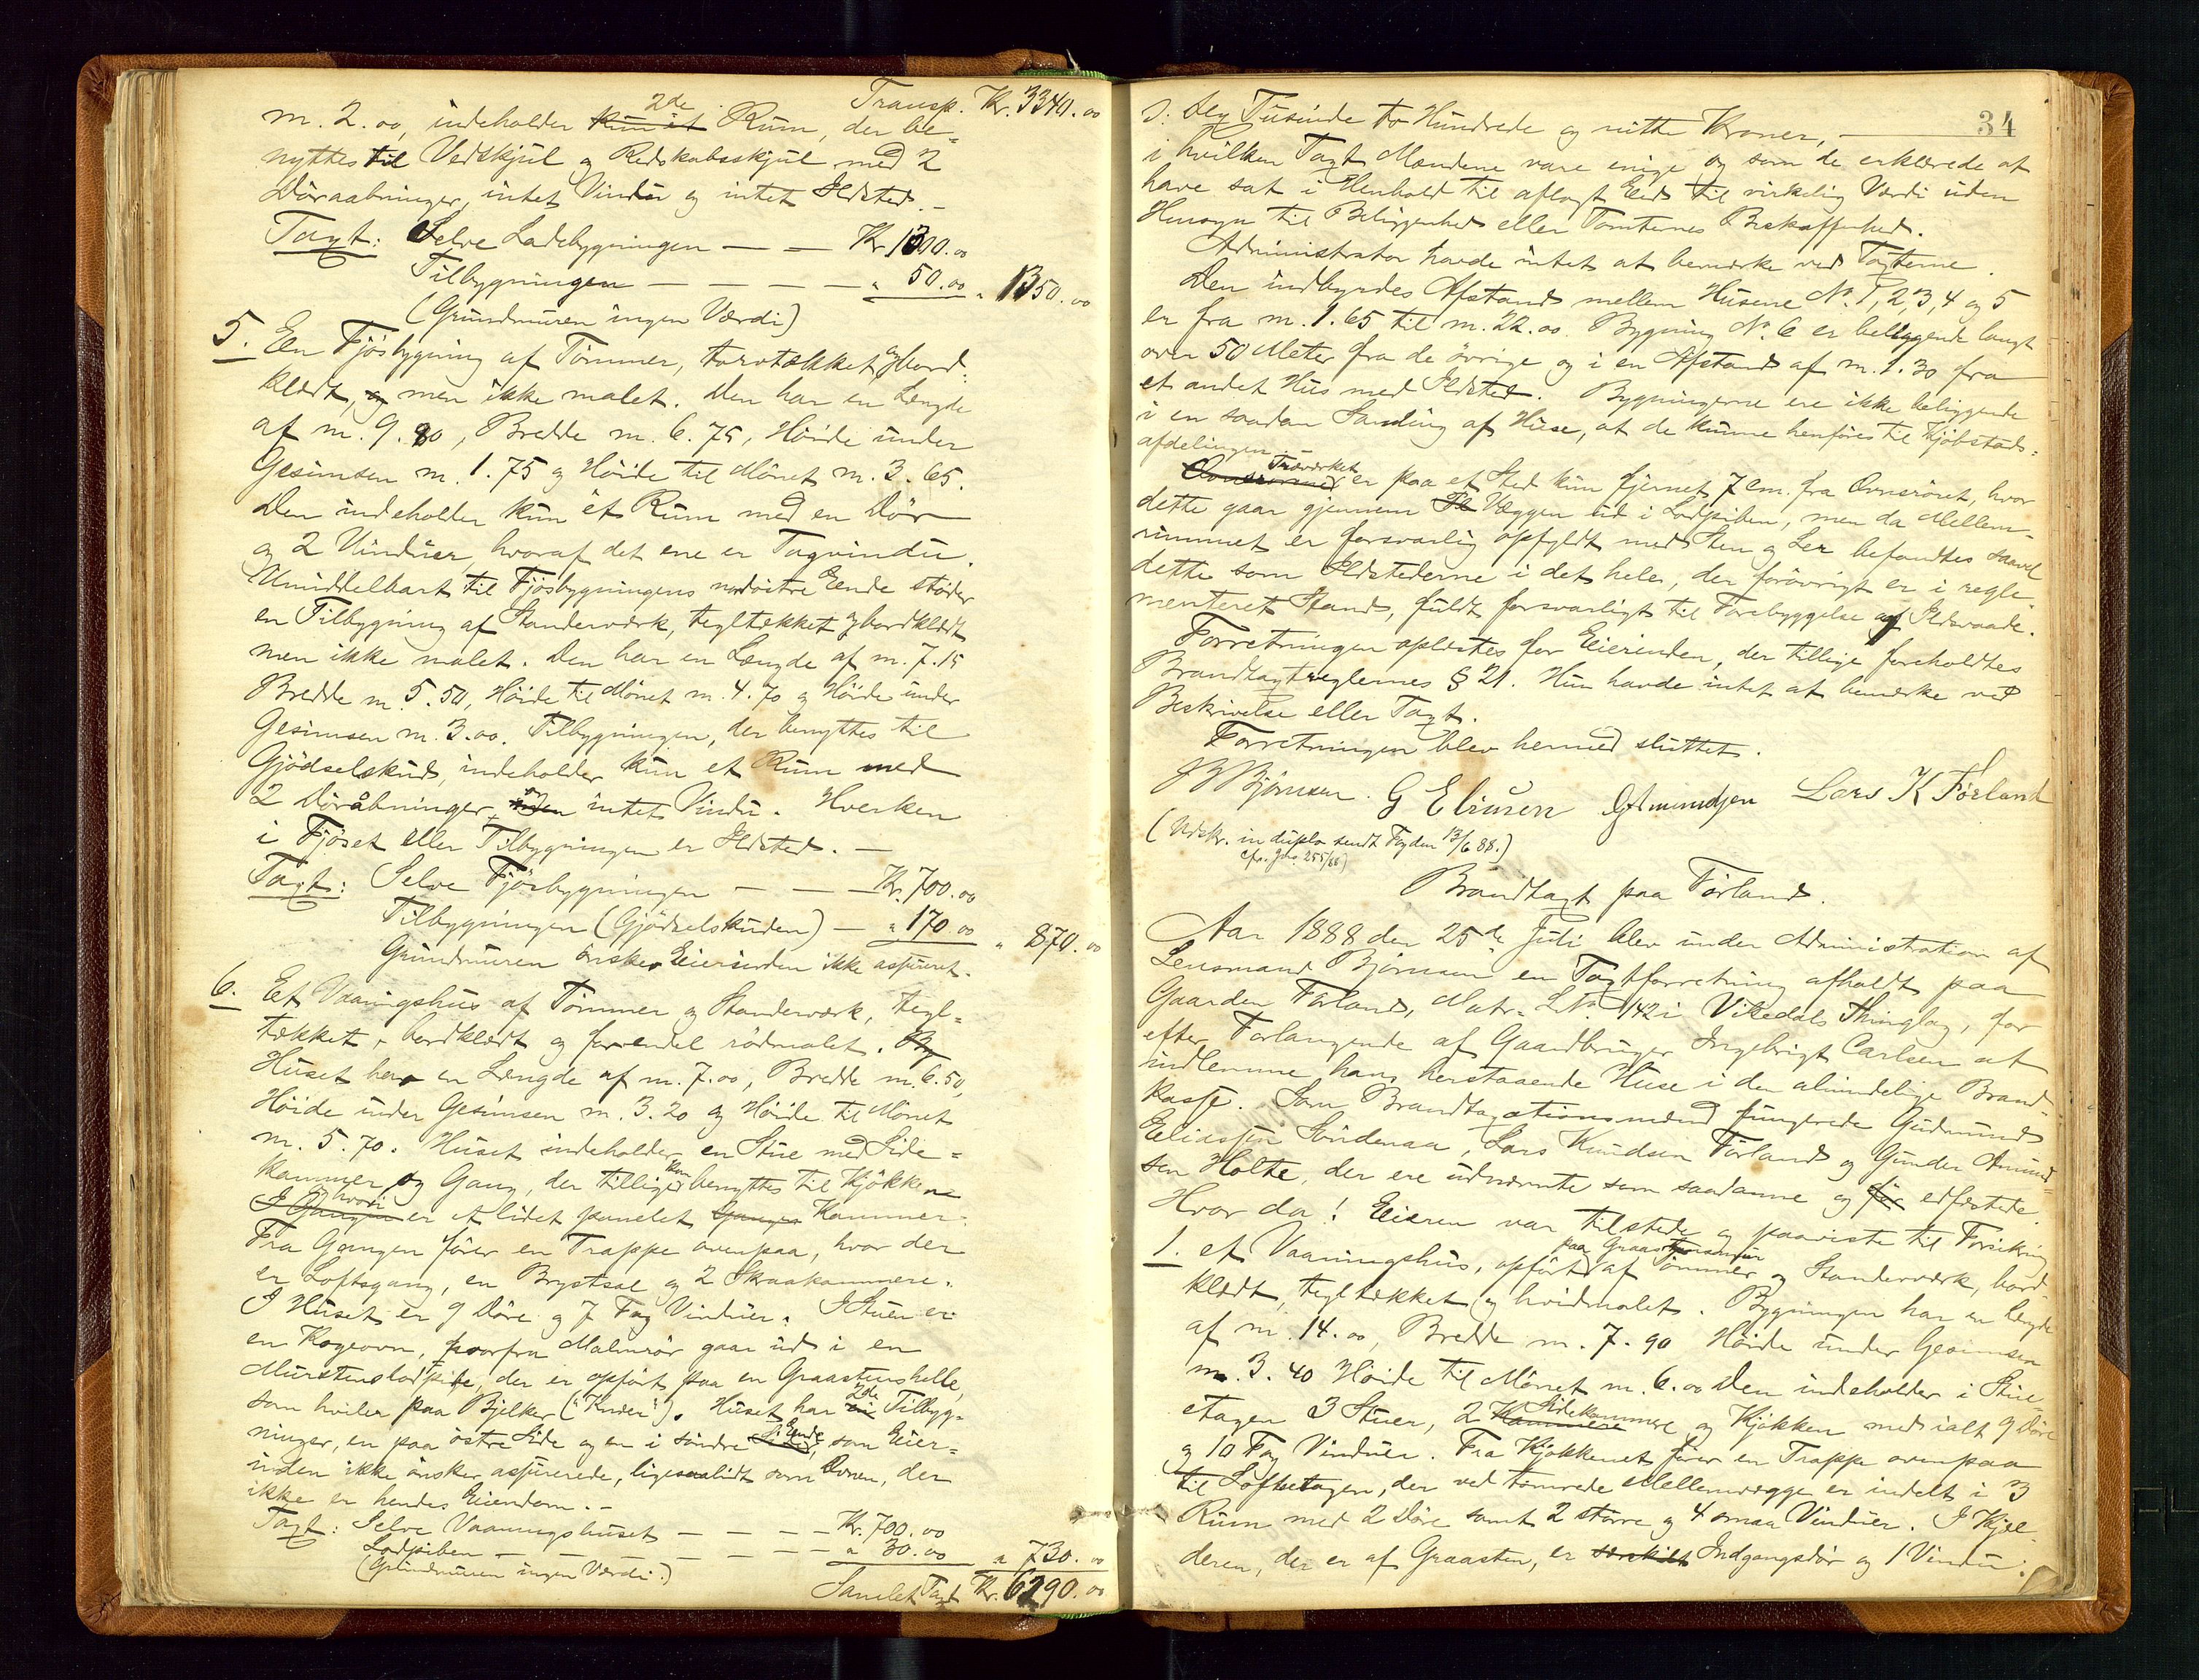 Transp. Kr. 3340.00
m. 2.00, indeholder 2de Rum, der be-
nyttes til Vedskjul og Redskabsskjul med 2
Döraabninger, intet Vindu og intet Ildsted. -
Taxt: Selve Ladebygningen — — Kr 1300.00
Tilbygningen — — — — — " 50.00 " 1350.00
(Grundmuren ingen Værdi)
5. Een Fjösbygning af Tömmer, torvtækket og bord-
klædt, og men ikke malet. Den har en Længde
af m. 9.80, Bredde m. 6.75, Höide under
Gesimsen m. 1.75 og Höide til Mönet m. 3.65.
Den indeholder kun èt Rum med en Dör
og 2 Vinduer, hvoraf det ene er Tagvindu.
Umiddelbart til Fjösbygningens nordöstre Eende stöder
en Tilbygning af Standerværk, tegltækket og bordklædt
men ikke malet. Den har en Længde af m. 7.15
Bredde m. 5.50, Höide til Mönet m. 4.70 og Höide under
Gesimsen m. 3.00. Tilbygningen, der benyttes til
Gjödselskud, indeholder kun et Rum med
2 Döråbninger, og intet Vindu. Hverken
i Fjöset eller Tilbygningen er Ildsted. —
Taxt: Selve Fjösbygningen — — — Kr. 700.00
Tilbygningen (Gjödselskuden) — " 170.00 " 870.00
Grundmuren önsker Eierinden ikke assureret.
6. Et Vaaningshus af Tömmer og Standerværk, tegl-
tækket, bordklædt og for endel rödmalet. By
Huset har en Længde af m. 7.00, Bredde m. 6.50,
Höide under Gesimsen m. 3.20 og Höide til Mönet
m. 5.70. Huset indeholder en Stue med Side-
kammer og Gang, der tillige kan benyttes til Kjökken
I Gangen og hvori er et lidet panelet Kammer.
Fra Gangen förer en Trappe ovenpaa, hvor der
er Loftsgang, en Brystsal og 2 Skraakammere.
I Huset er 9 Döre og 7 Fag Vinduer. I Stuen er
en Kogeovn, hvorfra Malmrör gaar ud i en
Murstenslodpibe, der er opfört paa en Graastenshelle,
som hviler paa Bjelker ("Knær"). Huset har 2de Tilbyg-
ninger, en paa östre Side og en i söndre Eende, som Eier-
inden ikke önsker assurerede, ligesaalidt som Ovnen, der
ikke er hendes Eiendom. -
Taxt: Selve Vaaningshuset — — — — Kr. 700.00
Lodpiben — — — — — — — " 30.00 " 730.00
(Grundmuren ingen Værdi.)
Samlet Taxt Kr. 6290.00
34
s: Sex Tusinde to Hundrede og nitti Kroner, —
i hvilken Taxt Mændene vare enige og som de erklærede at
have sat i Henhold til aflagt Eed til virkelig Værdi uden
Hensyn til Beliggenhed eller Tomternes Beskaffenhed.
Administrator havde intet at bemærke ved Taxterne.
Den indbyrdes Afstand mellem Husene No. 1, 2, 3, 4 og 5
er fra m. 1.65 til m. 22.00. Bygning No. 6 er beliggende langt
over 50 Meter fra de övrige og i en Afstand af m. 1.30 fra
et andet Hus med Ildsted. Bygningerne ere ikke beliggende
i en saadan Samling af Huse, at de kunne henföres til Kjöbstads-
afdelingen. —
Træværket er paa et Sted kun fjernet 7 cm. fra Ovnsröret, hvor
dette gaar gjennem Væggen ud i Lodpiben, men da Mellem-
rummet er forsvarlig opfyldt med Sten og Ler befandtes saavel
dette som Ildstederne i det hele, der forövrigt er i regle-
menteret Stand, fuldt forsvarligt til Forebyggelse af Ildsvaade.
Forretningen oplæstes for Eierinden, der tillige foreholdtes
Brandtaxtreglernes § 21. Hun havde intet at bemærke ved
Beskrivelse eller Taxt.
Forretningen blev hermed sluttet.
J B Bjørnsen. G Eliasen G Amundsen Lars K Førland
(Udskr. in duplo sendt Fogden 13/6 88.)
cfr. Jno. 255/88)
Brandtaxt paa Førland.
Aar 1888 den 25de Juli blev under Administration af
Lensmand Björnsen en Taxtforretning afholdt paa
Gaarden Förland, Matr. L.No. 142 i Vikedals Thinglag, for
efter Forlangende af Gaardbruger Ingebrigt Carlsen at
indlemme hans herstaaende Huse i den almindelige Brand-
kasse. Som Brandtaxationsmænd fungerede Gudmund
Eliassen Söndenaa, Lars Knudsen Förland og Gunder Amund-
sen Holte, der ere udnævnte som saadanne og edfæstede.
Hvor da! Eieren var tilstede og paaviste til Forsikring
1. et Vaaningshus, opfört paa Graastensmur af Tömmer og Standerværk, bord-
klædt, tegltækket og hvidmalet. Bygningen har en Længde
af m. 14.00, Bredde m. 7.90 Höide under Gesimsen
m. 3.40 Höide til Mönet m. 6.00 Den indeholder i Stue-
etagen 3 Stuer, 2 Sidekammere og Kjökken med ialt 9 Döre
og 10 Fag Vinduer. Fra Kjökkenet förer en Trappe ovenpaa
til Loftsetagen, der ved tömrede Mellemvægge er indelt i 3
Rum med 2 Döre samt 2 större og 4 smaa Vinduer. I Kjel-
deren, der er af Graasten, er særskilt Indgangsdör og 1 Vindu.